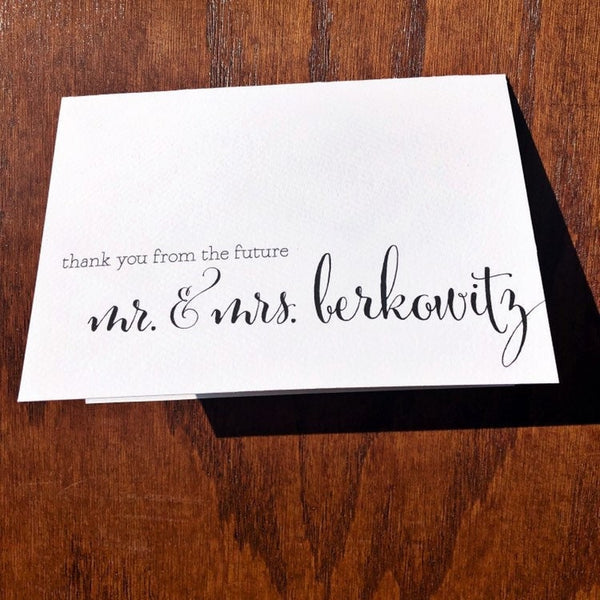 thank you from the future
mr. & mrs. berkowitz